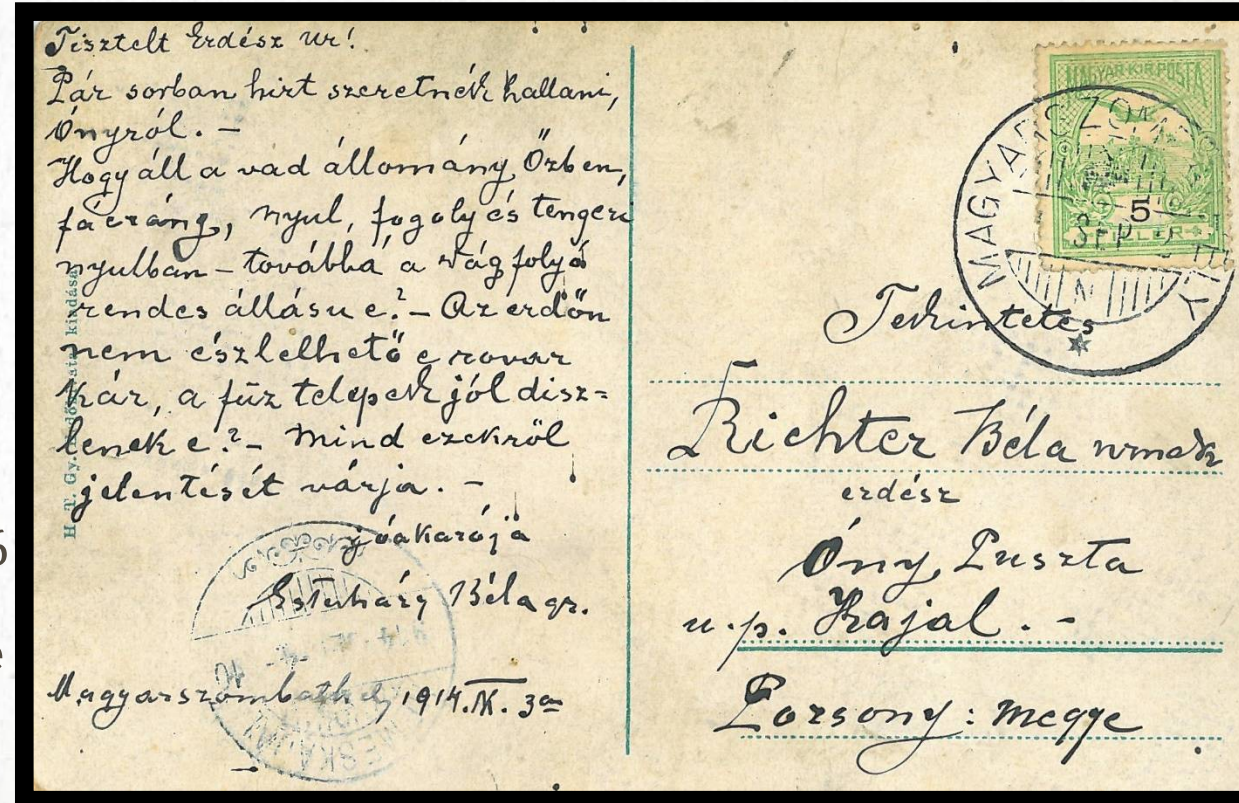 Tisztelt Erdész Ur!
Pár sorban hirt szeretnék hallani,
Ónyról. –
Hogy áll a vad állomány Őzben,
fáczáng, nyul, fogoly és tengeri
nyulban – továbbá a Vág folyó
rendes állásu e? – Az erdőn
nem észlelhető e rovar
kár, a fűz telepek jól disz=
lenek e? – Mind ezekről
jelentését várja. –
jóakarója
Esterházy Béla gr.
Magyarszombathely, 1914. IX. 3án
H. T. Gy. kiadása
MAGYAR KIR. POSTA
FILLÉR
MAGYARSZOMBATHELY
5
SEP
N
Tekintetes
Richter Béla urnak
erdész
Óny Puszta
u. p. Kajal. –
Pozsony: megye
6
e